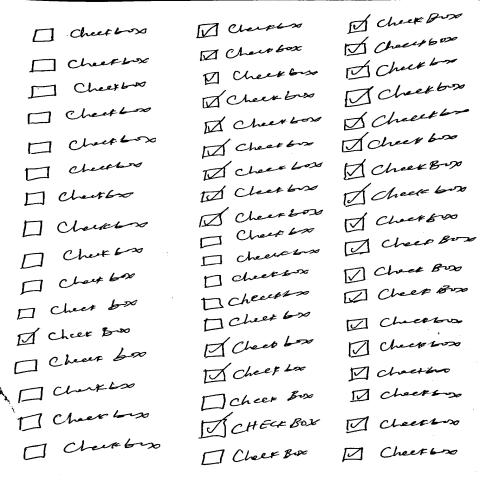 Checkbox
Checkbox
Checkbox
Checkbox
Checkbox
Checkbox
Checkbox
Checkbox
Check box
Checkbox
Check box
Check Box
Check box
Checkbox
Checkbox
Checkbox
Checkbox
Checkbox
Checkbox
Checkbox
Checkbox
Checkbox
Checkbox
Checkbox
Checkbox
Check box
Checkbox
Checkbox
Checkbox
Checkbox
Check box
Check box
Check Box
CHECKBOX
Check Box
Check Box
Checkbox
Check box
Checkbox
Checkbox
Checkbox
Check Box
Check box
Check Box
Check Box
Check Box
Check Box
Checkbox
Checkbox
Checkbox
Checkbox
Checkbox
Checkbox